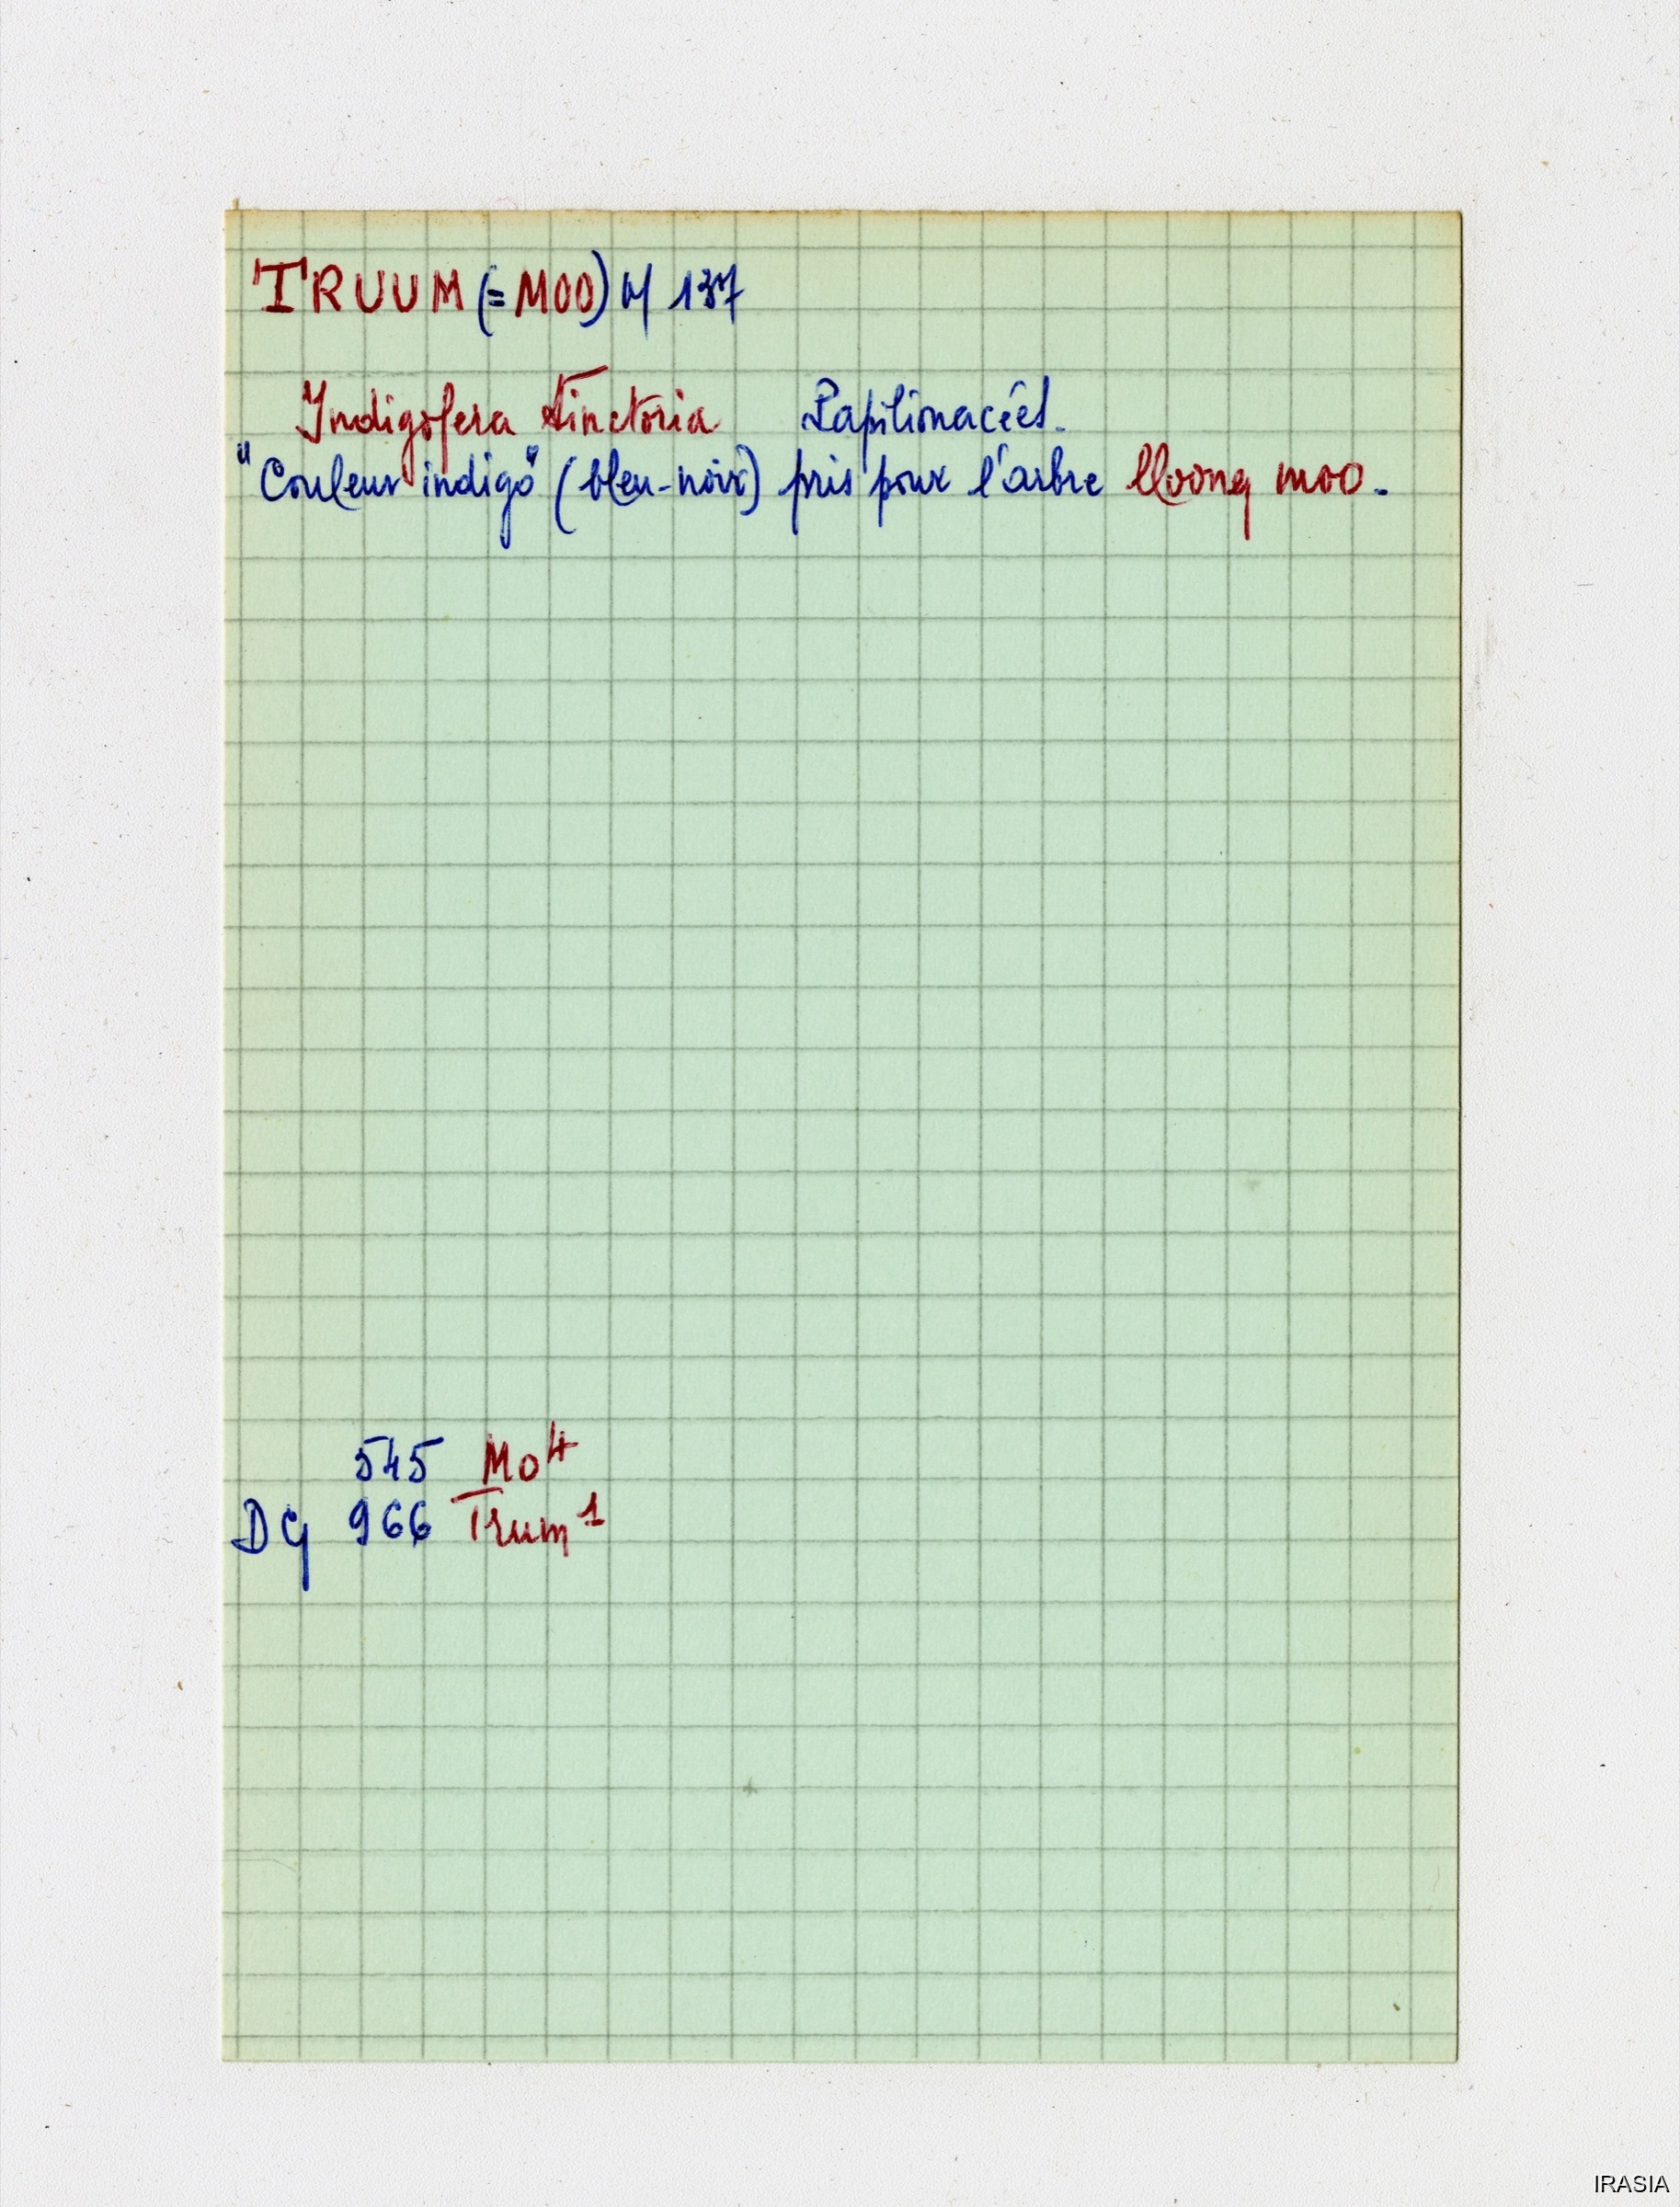 TRUUM (= MOO) H 137
Indigofera tinctoria Papilionacées.
"Couleur indigo" (bleu-noir) pris pour l'arbre lloong moo.
545 Mo⁴
DG 966 Trum¹
IRASIA